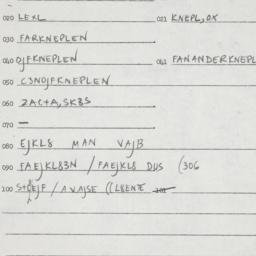 020 LEXL 021 KNEPL,OX
030 FARKNEPLEN
040 OJFKNEPLEN 041 FANANDERKNEPL
050 CSNOJFKNEPLEN
060 ZACTA,SKBS
070 —
080 EJKL8 MAN VAJB
090 FAEJKL83N / FAEJKL8 DUS (306
100 / AVAJSE ((L8ENTE